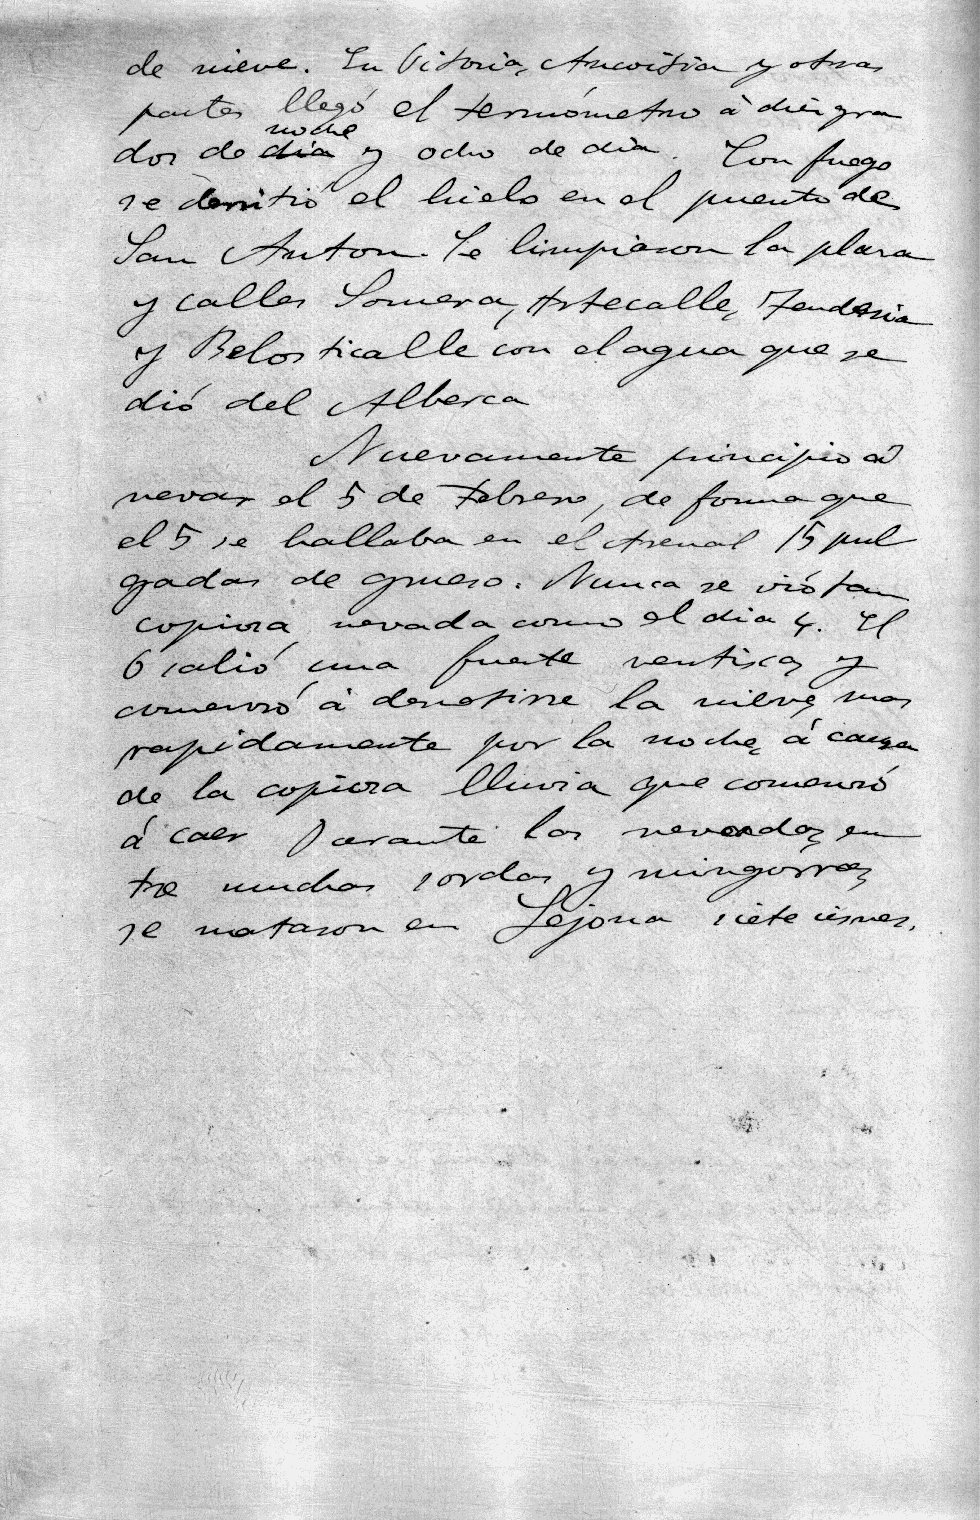 de nieve. En Vitoria, Ancoitia y otras
partes llegó el termómetro á diez gra
dos de noche
dia y ocho de dia. Con fuego
se derritió el hielo en el puente de
San Anton. Se limpiaron la plaza
y calles Somera, Artecalle, Tenderia
y Belosticalle con el agua que se
dió del Alberca
Nuevamente principio á
nevar el 5 de Febrero, de forma que
el 5 se hallaba en el Arenal 15 pul
gadas de grueso. Nunca se vió tan
copiosa nevada como el dia 4. El
6 salió una fuerte ventisca, y
comenzó á derretirse la nieve, mas
rapidamente por la noche, á causa
de la copiosa lluvia que comenzó
á caer Durante las nevadas, en
tre muchas sordas y mingorras,
se mataron en Lejona siete cisnes.